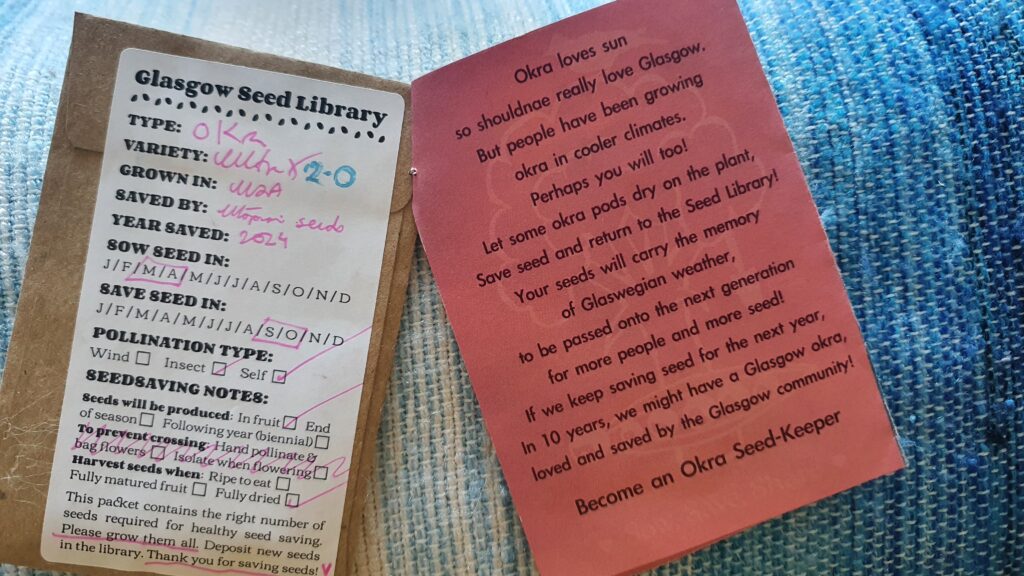 Glasgow Seed Library
TYPE: OKra
VARIETY: Ultra X 2-0
GROWN IN: USA
SAVED BY: Utopian seeds
YEAR SAVED: 2024
SOW SEED IN:
J/F/M/A/M/J/J/A/S/O/N/D
SAVE SEED IN:
J/F/M/A/M/J/J/A/S/O/N/D
POLLINATION TYPE:
Wind Insect Self
SEEDSAVING NOTES:
Seeds will be produced: In fruit End
of season Following year (biennial)
To prevent crossing: Hand pollinate &
bag flowers Isolate when flowering
Harvest seeds when: Ripe to eat
Fully matured fruit Fully dried
This packet contains the right number of
seeds required for healthy seed saving.
Please grow them all. Deposit new seeds
in the library. Thank you for saving seeds!
Okra loves sun
so shouldnae really love Glasgow.
But people have been growing
okra in cooler climates.
Perhaps you will too!
Let some okra pods dry on the plant,
Save seed and return to the Seed Library!
Your seeds will carry the memory
of Glaswegian weather,
to be passed onto the next generation
for more people and more seed!
If we keep saving seed for the next year,
In 10 years, we might have a Glasgow okra,
loved and saved by the Glasgow community!
Become an Okra Seed-Keeper